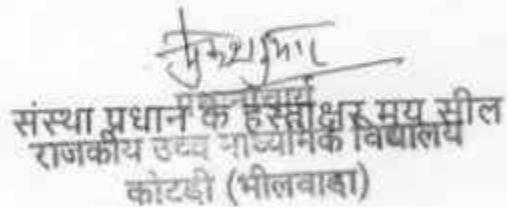 प्रधानाचार्य
संस्था प्रधान के हस्ताक्षर मय सील
राजकीय उच्च माध्यमिक विद्यालय
कोटडी (भीलवाडा)